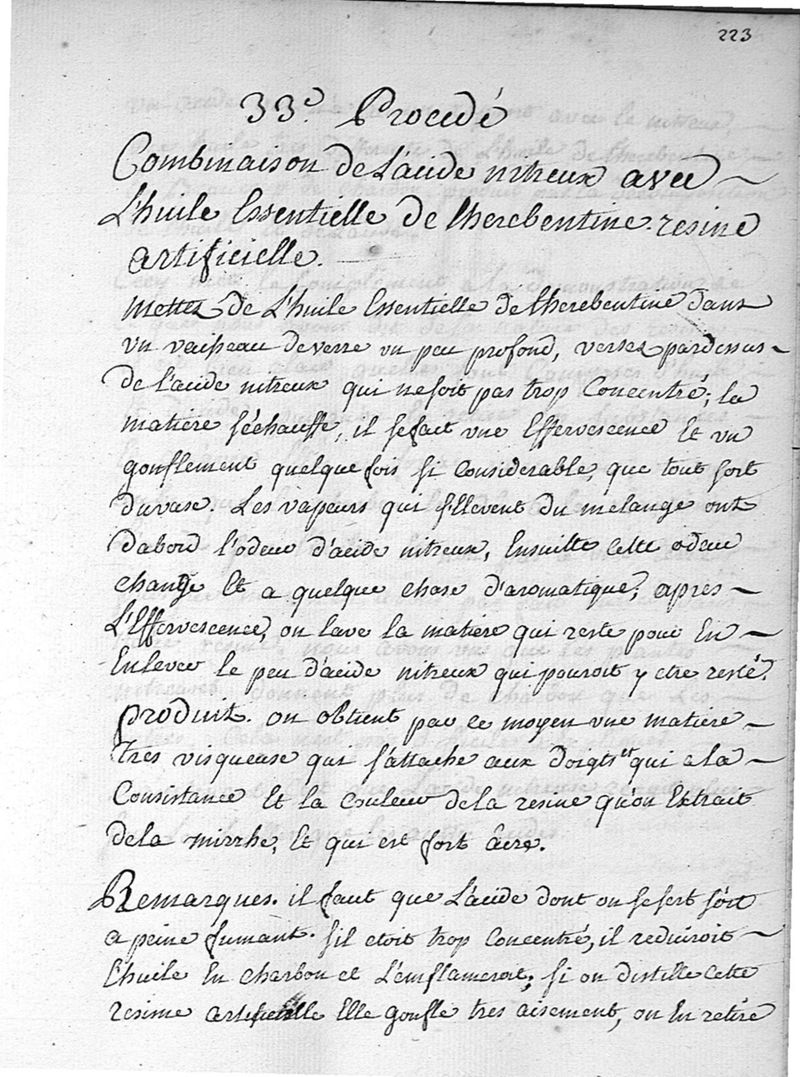 223
33e. Procedé
Combinaison de L'acide nitreux avec
L'huile Essentielle de therebentine. resine
artificielle.
Mettez de L'huile Essentielle de therebentine dans
un vaisseau de verre un peu profond, versez pardessus
de l'acide nitreux qui ne soit pas trop Concentré; la
matiere s'échauffe, il se fait une Effervescence Et un
gonflement quelque fois si considerable, que tout sort
du vase. Les vapeurs qui s'Elevent du mélange ont
dabord l'odeur d'acide nitreux, Ensuitte cette odeur
change Et a quelque chose d'aromatique; apres
L'Effervescence, on lave la matiere qui reste pour En
Enlever le peu d'acide nitreux qui pouroit y etre resté.
produit. on obtient par ce moyen une matiere
tres visqueuse qui s'attache aux doigts et qui a la
Consistance Et la couleur de la resine qu'on Extrait
de la mirrhe, Et qui est fort âcre.
Remarques. il faut que L'acide dont on se sert soit
a peine fumant. s'il etoit trop Concentré, il reduiroit
l'huile En charbon et L'enflameroit; si on distille cette
resine artificielle Elle gonfle tres aisement, on En retire